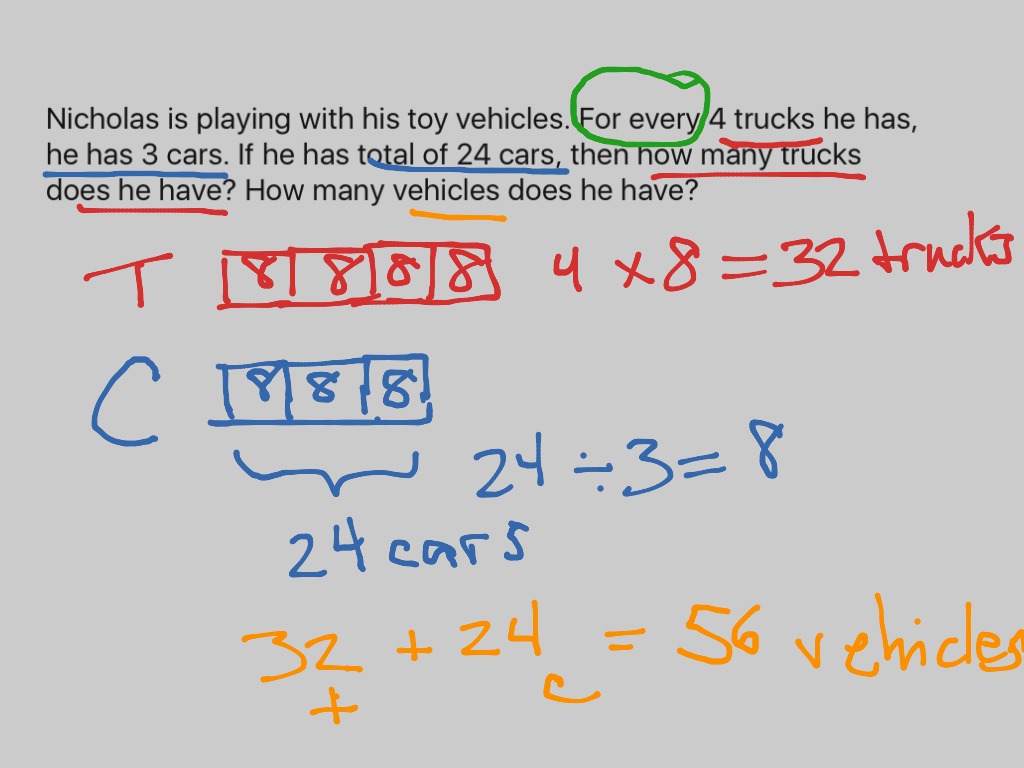 Nicholas is playing with his toy vehicles. For every 4 trucks he has,
he has 3 cars. If he has total of 24 cars, then how many trucks
does he have? How many vehicles does he have?
T 8 8 8 8 4 × 8 = 32 trucks
C 8 8 8
24 ÷ 3 = 8
24 cars
32 + 24 = 56 vehicles
t c